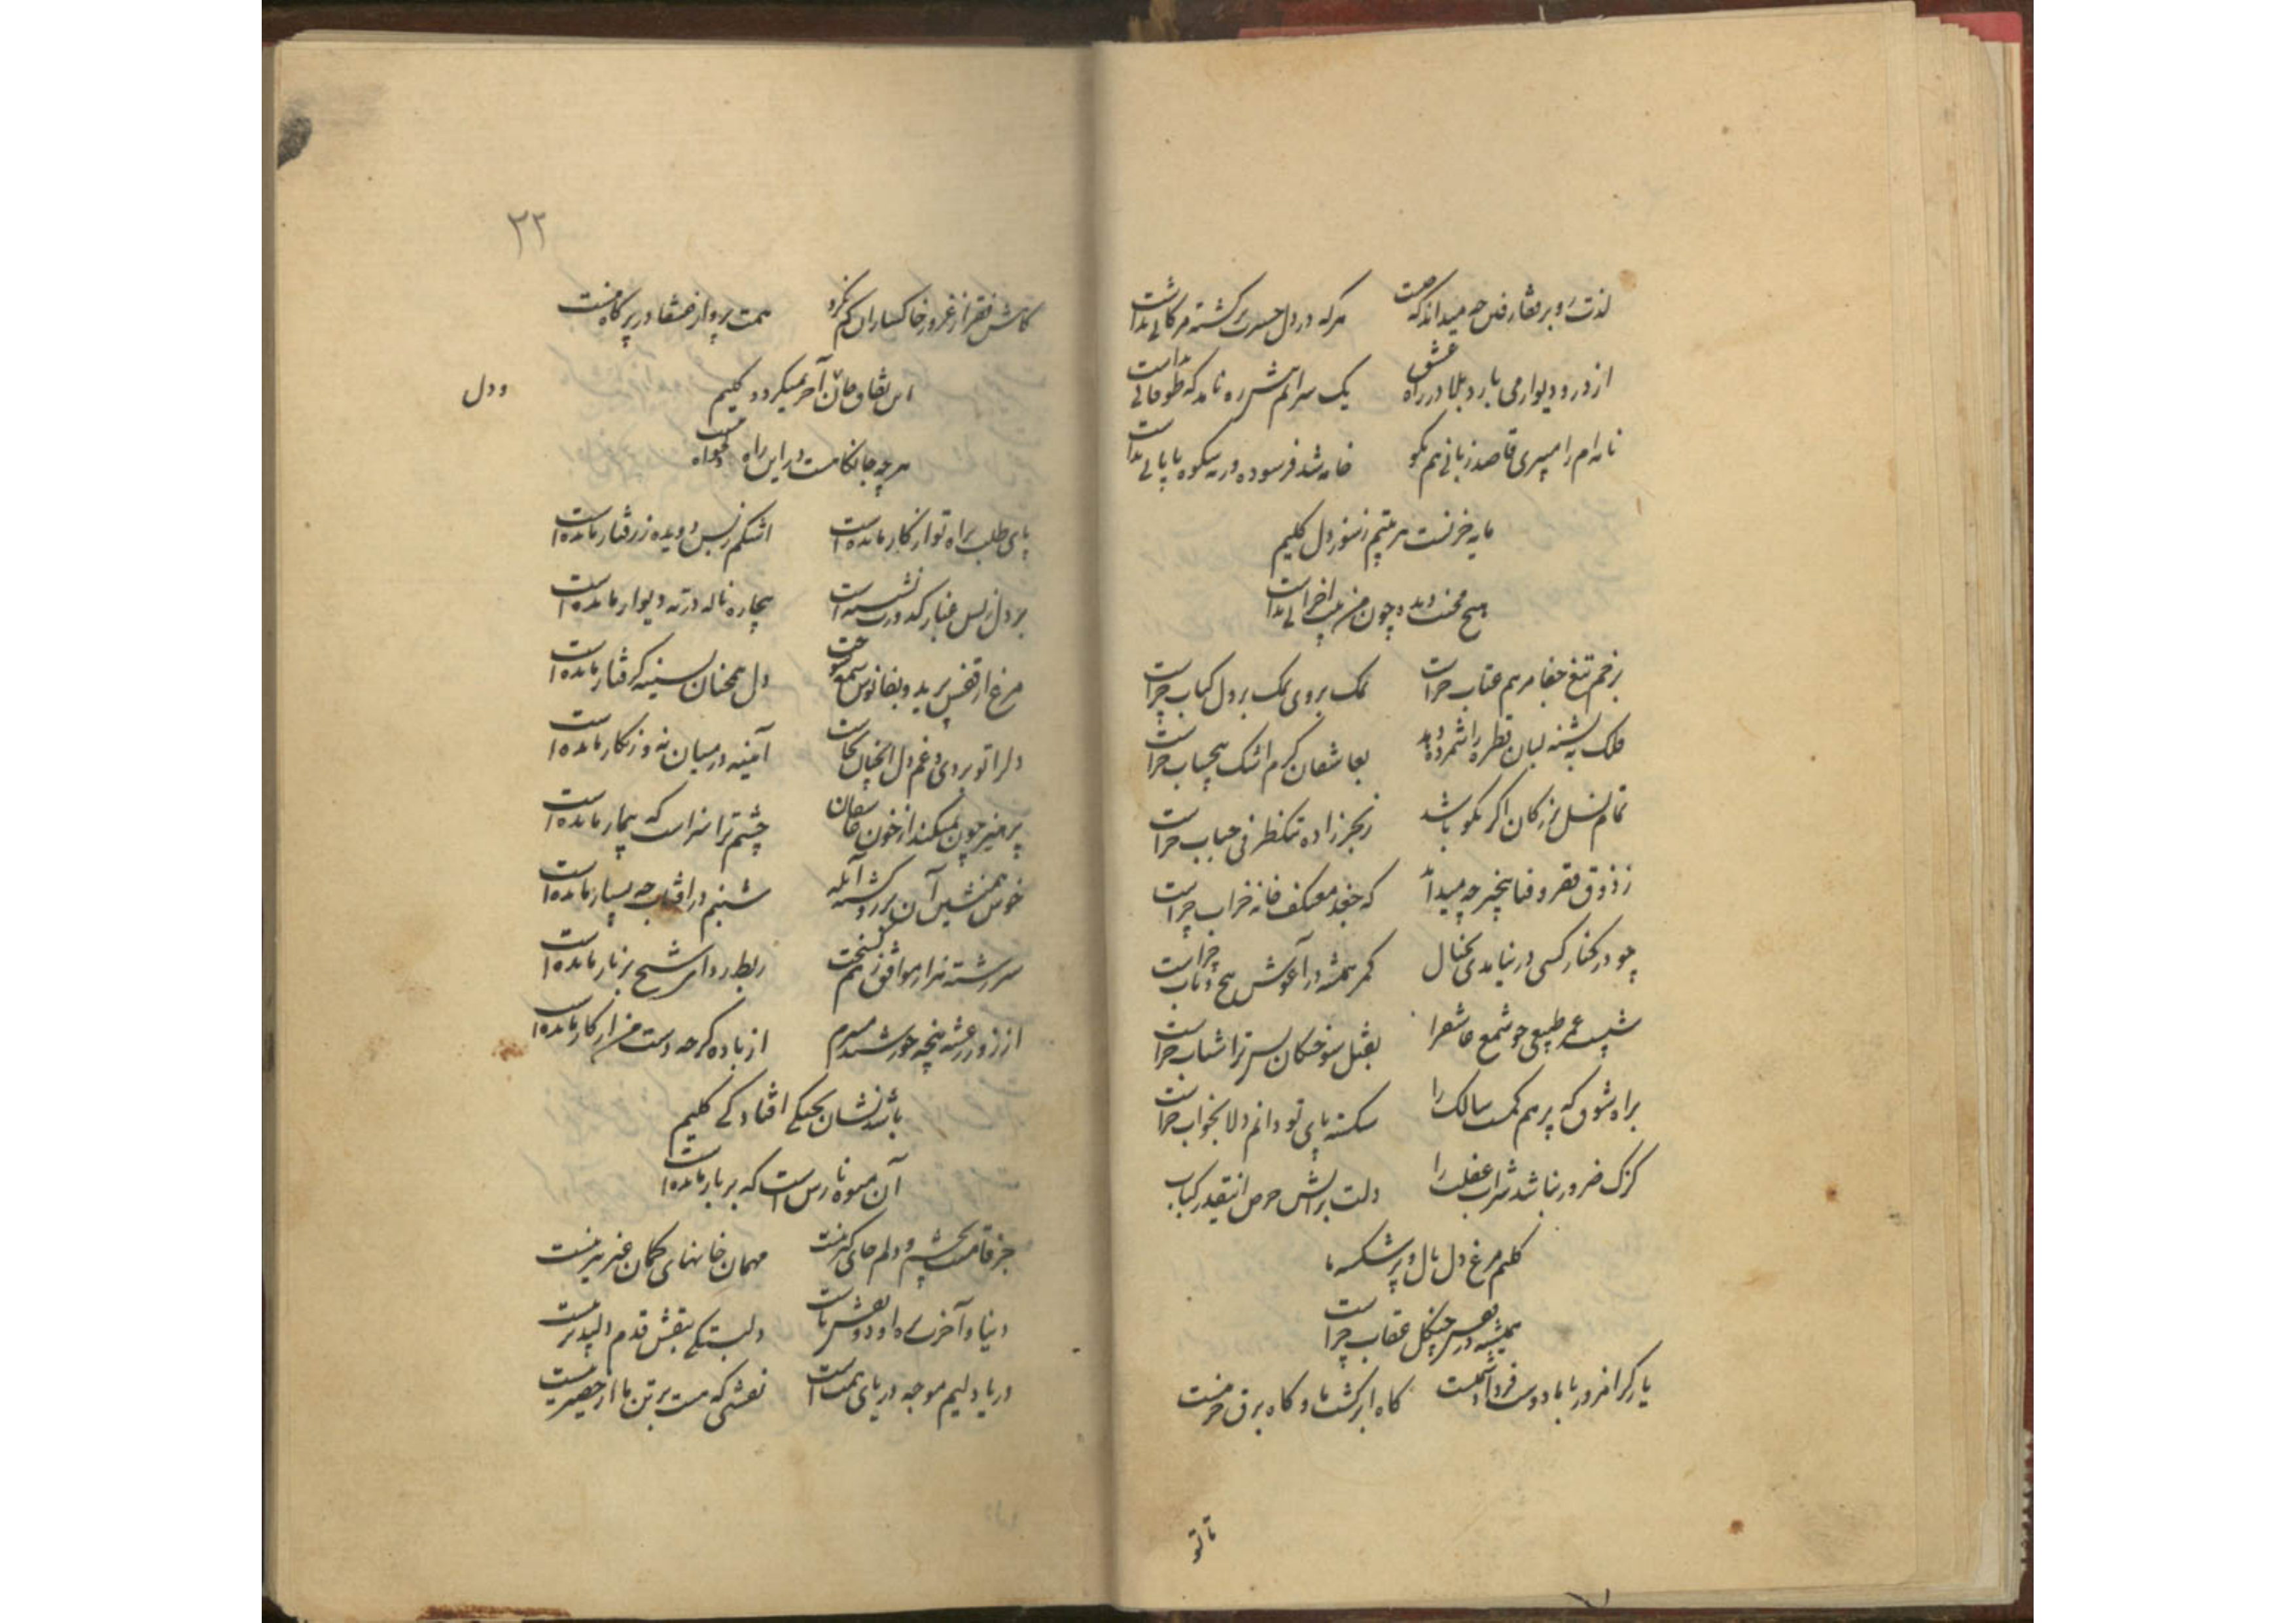 لذت
هرکه در دل حسرت برکشته مژکانی نداشت
از در و دیوار می بارد بلا در راه عشق
یک سر
که طوفانی نداشت
نامه ام را میبری قاصد زبانی هم بکو
خامه شد فرسوده و
پایانی نداشت
ز سوز دل کلیم
هیچ
دیده چون من
نداشت
بزخم تیغ جفا مرهم عتاب چراست
نمک بروی نمک بر دل کباب چراست
فلک به تشنه لبان قطره را شمرده دهد
بعاشقان کرم اشک بیحساب چراست
تمام نسل بزرکان اکر نکو باشد
ز بحر زاده تنکظرفی حباب چراست
ز ذوق فقر و فنا بیخبر چه میداند
که جغد معتکف خانه خراب چراست
چو در کنار کسی در نیایدی بخیال
کمر همیشه در آغوش پیچ و تاب چراست
عمر طبیعی چو شمع عاشق را
بقتل سوختکان
ترا شتاب چراست
براه شوق که
هم
سالک را
شکسته پای تو دانم دلا بخواب چراست
کزک ضرور نباشد شراب غفلت را
دلت بر آتش حرص اینقدر کباب
کلیم مرغ دل بال و پر شکسته ما
همیشه در قفس چنکل عقاب چراست
یار کر امروز با ما دوست فردا دشمنست
کاه ابر کشت ما و کاه برق خرمنست
تا تو
۲۲
کاش فقر از غرور خاکساران کم نکرد
همت پرواز عنقا در پر کاه منست
این
آخر نمیکردد کلیم
و دل
هر چه جانکاهست در این راه دلخواه منست
پای طلب براه تو از کار مانده است
اشکم ز بس دویده ز رفتار مانده است
بر دل ز بس غبار کدورت نشسته است
بیچاره ناله در ته دیوار مانده است
مرغ از قفس پرید و بفانوس شمع سوخت
دل همچنان بسینه کرفتار مانده است
دل را تو بردی و غم دل همچنان بجاست
آیینه در میان نه و زنکار مانده است
پرهیز چون نمیکند از خون عاشقان
چشم ترا سزاست که بیمار مانده است
خوش همنشین آن
شبنم در آفتاب چه بسیار مانده است
سر رشته
موافق ز هم کسیخت
ربط ردای شیخ بزنار مانده است
از زور رعشه پنجه خورشید میبرم
از باده کرچه دست من از کار مانده است
باشد نشان پختکی افتادکی کلیم
آن میوه نارس است که بر بار مانده است
جز قامتت بچشم و دلم جای کیر نیست
مهمان خانهای کمان غیر تیر نیست
دنیا و آخرت
دلبستکی بنقش قدم دلپذیر نیست
دریا دلیم موجه دریای همت است
نقشی که هست بر تن ما از حصیر نیست